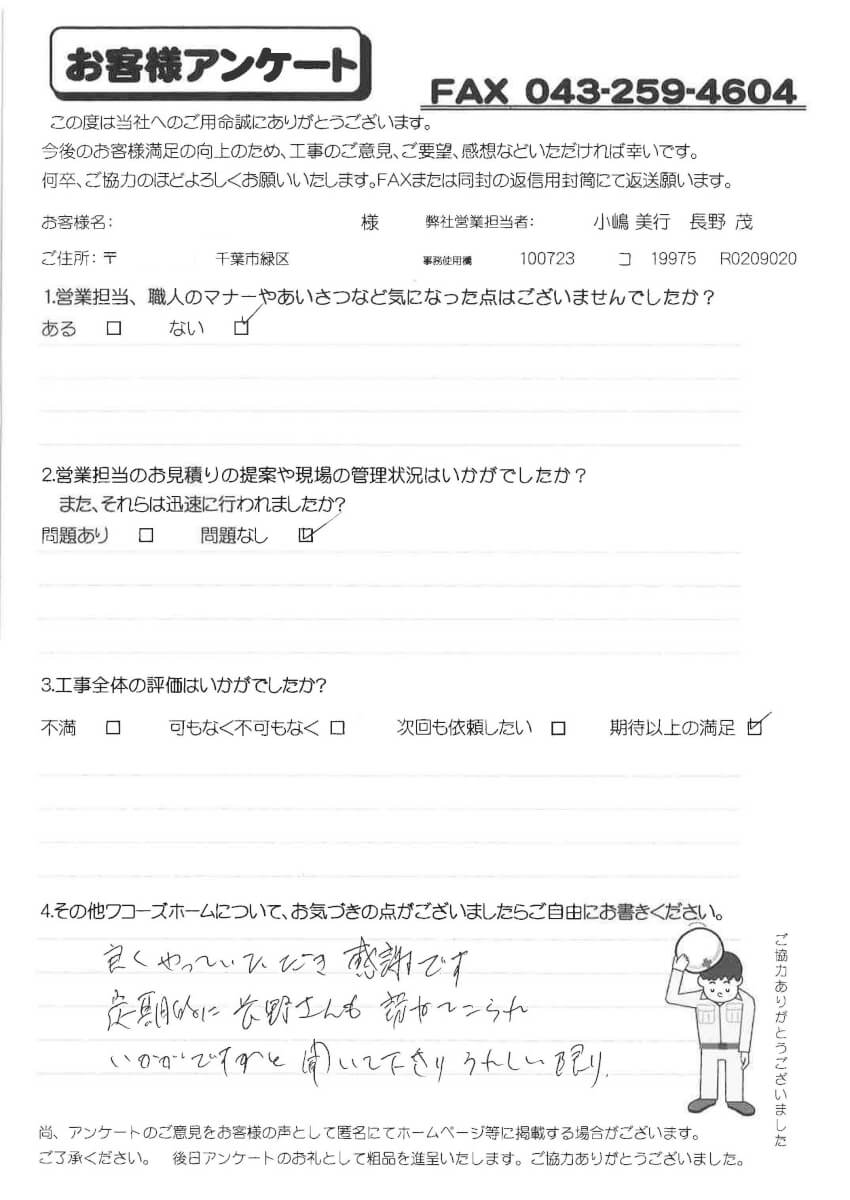 お客様アンケート
FAX 043-259-4604
この度は当社へのご用命誠にありがとうございます。
今後のお客様満足の向上のため、工事のご意見、ご要望、感想などいただければ幸いです。
何卒、ご協力のほどよろしくお願いいたします。FAXまたは同封の返信用封筒にて返送願います。
お客様名: 様 弊社営業担当者: 小嶋 美行 長野 茂
ご住所:〒 千葉市緑区 事務使用欄 100723 コ 19975 R0209020
1.営業担当、職人のマナーやあいさつなど気になった点はございませんでしたか?
ある □ ない ☑
2.営業担当のお見積りの提案や現場の管理状況はいかがでしたか?
また、それらは迅速に行われましたか?
問題あり □ 問題なし ☑
3.工事全体の評価はいかがでしたか?
不満 □ 可もなく不可もなく □ 次回も依頼したい □ 期待以上の満足 ☑
4.その他ワコーズホームについて、お気づきの点がございましたらご自由にお書きください。
良くやっていただき 感謝です
定期的に 長野さんも 訪ねてこられ
いかがですかと 聞いて下さり うれしい限り.
ご協力ありがとうございました
尚、アンケートのご意見をお客様の声として匿名にてホームページ等に掲載する場合がございます。
ご了承ください。 後日アンケートのお礼として粗品を進呈いたします。ご協力ありがとうございました。